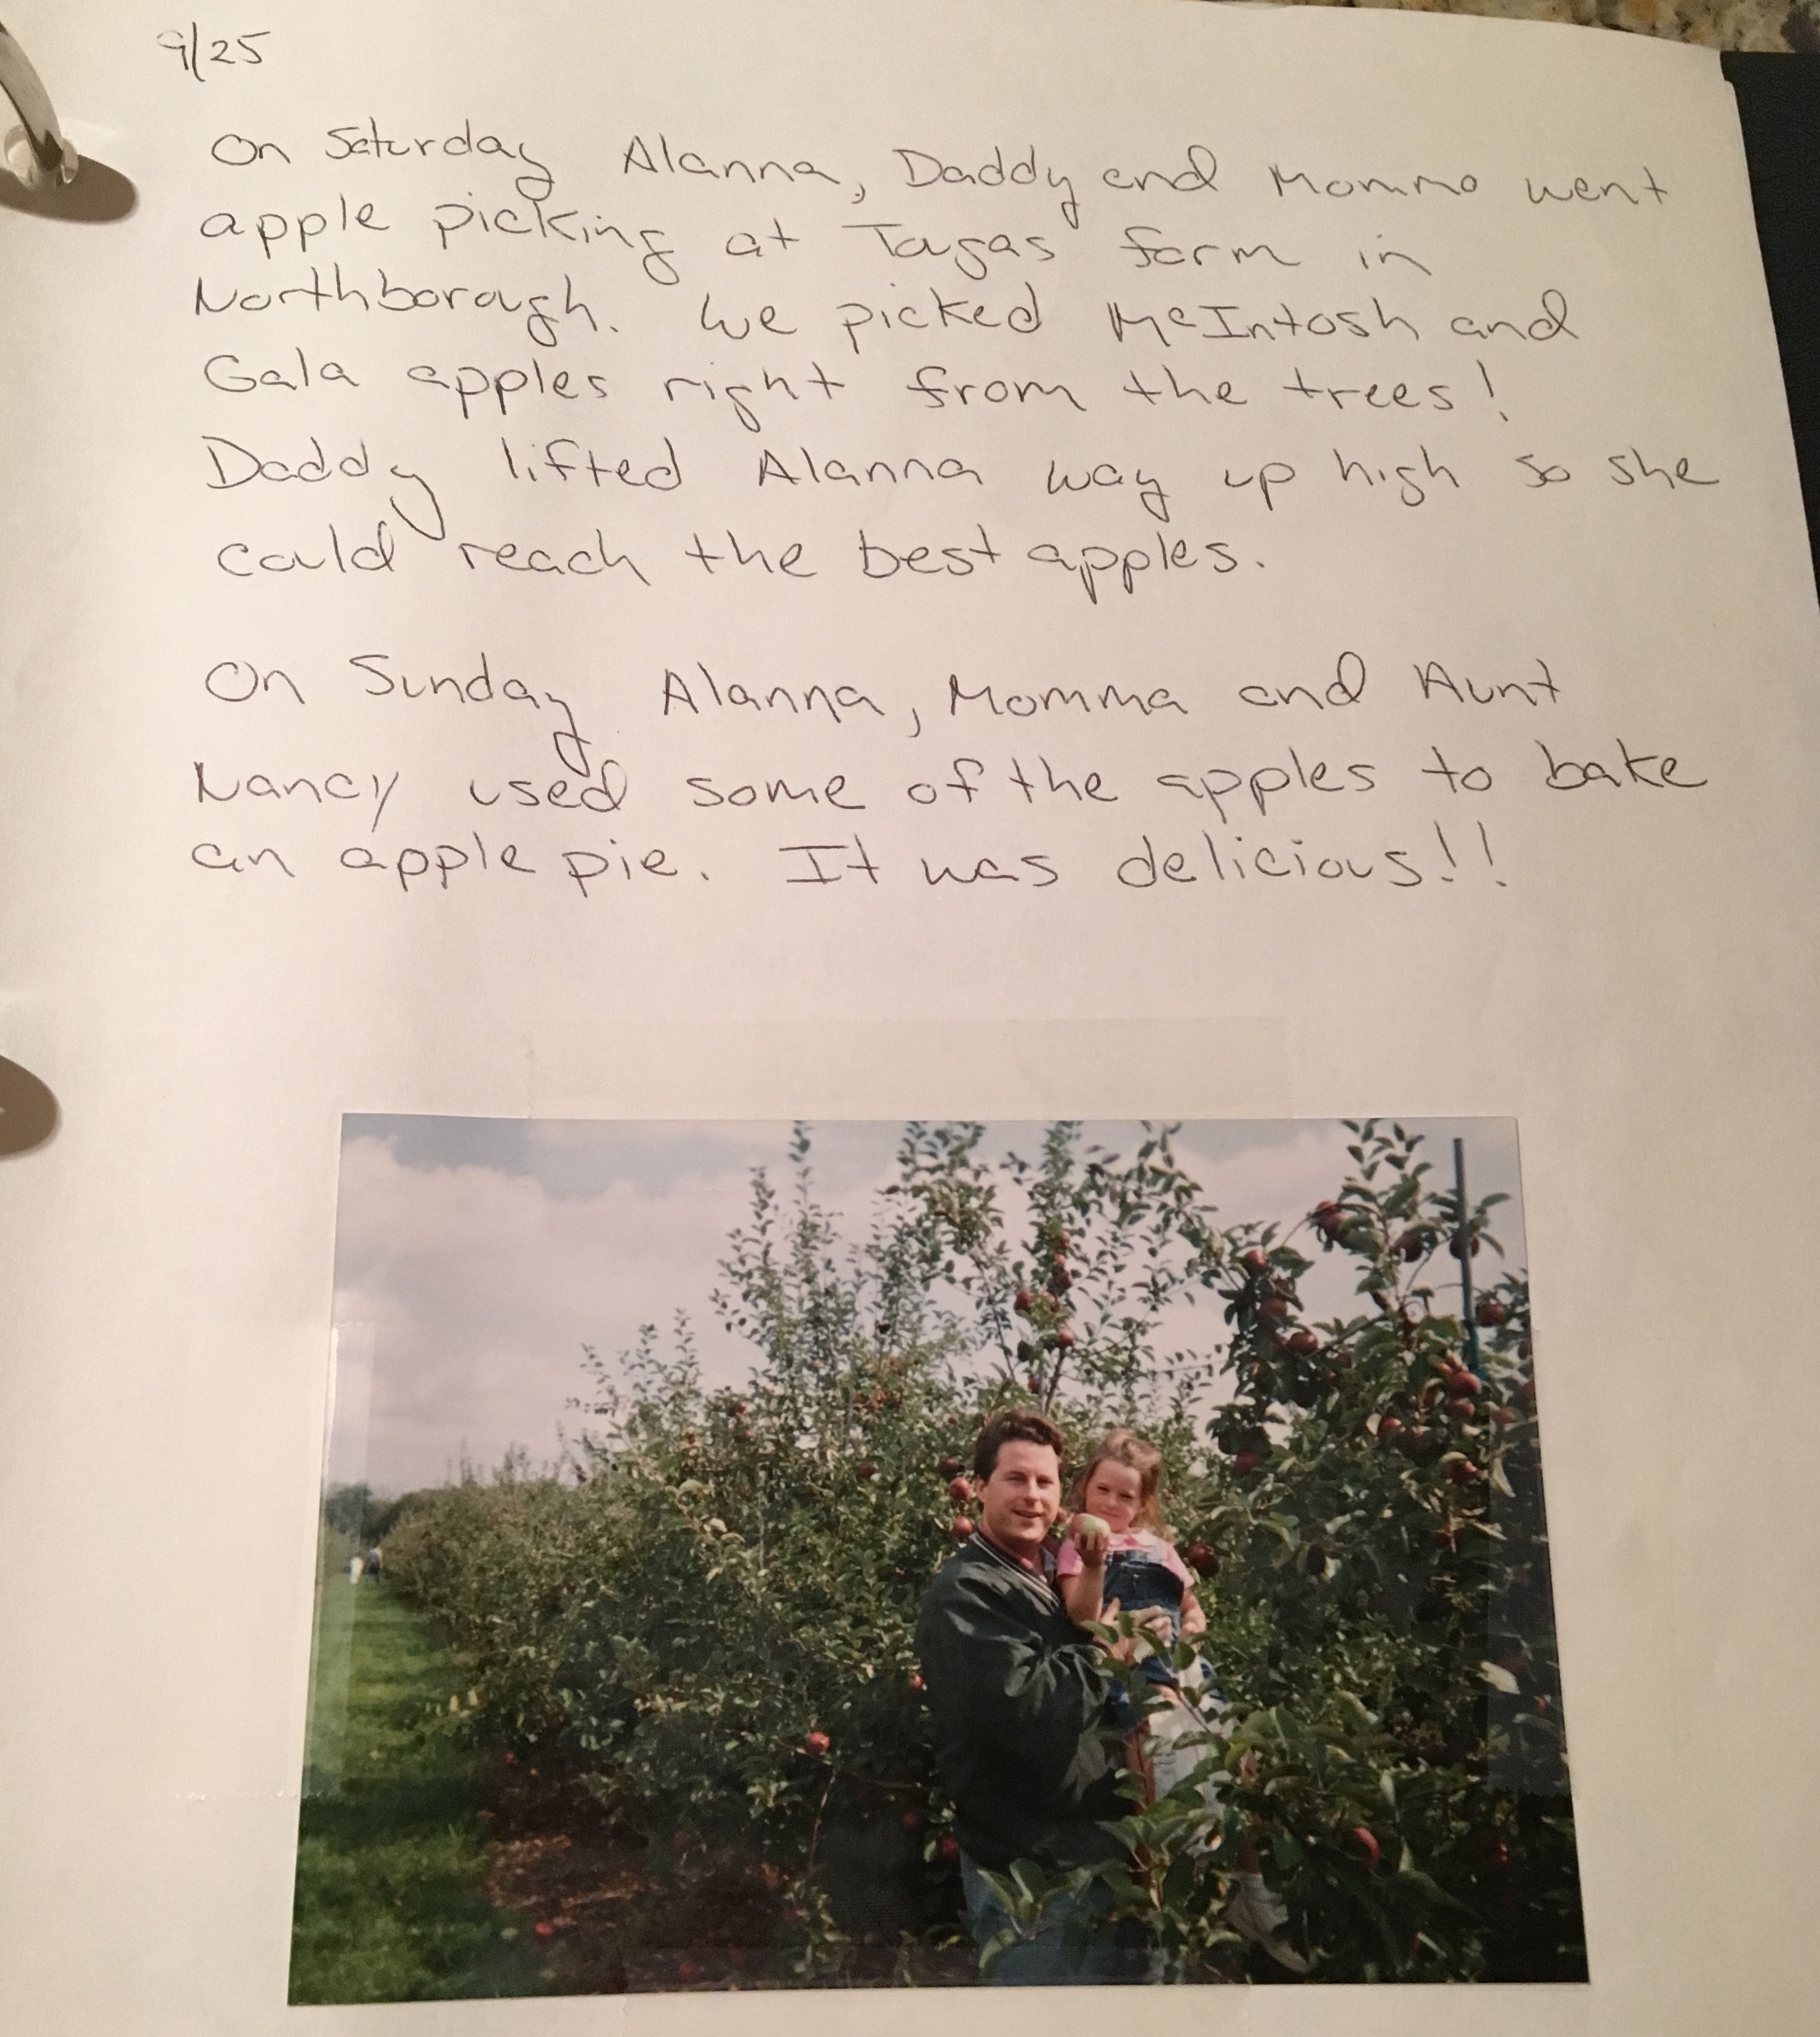 9/25
On Saturday Alanna, Daddy and Momma went
apple picking at Tagas farm in
Northborough. We picked McIntosh and
Gala apples right from the trees!
Daddy lifted Alanna way up high so she
could reach the best apples.
On Sunday Alanna, Momma and Aunt
Nancy used some of the apples to bake
an apple pie. It was delicious!!